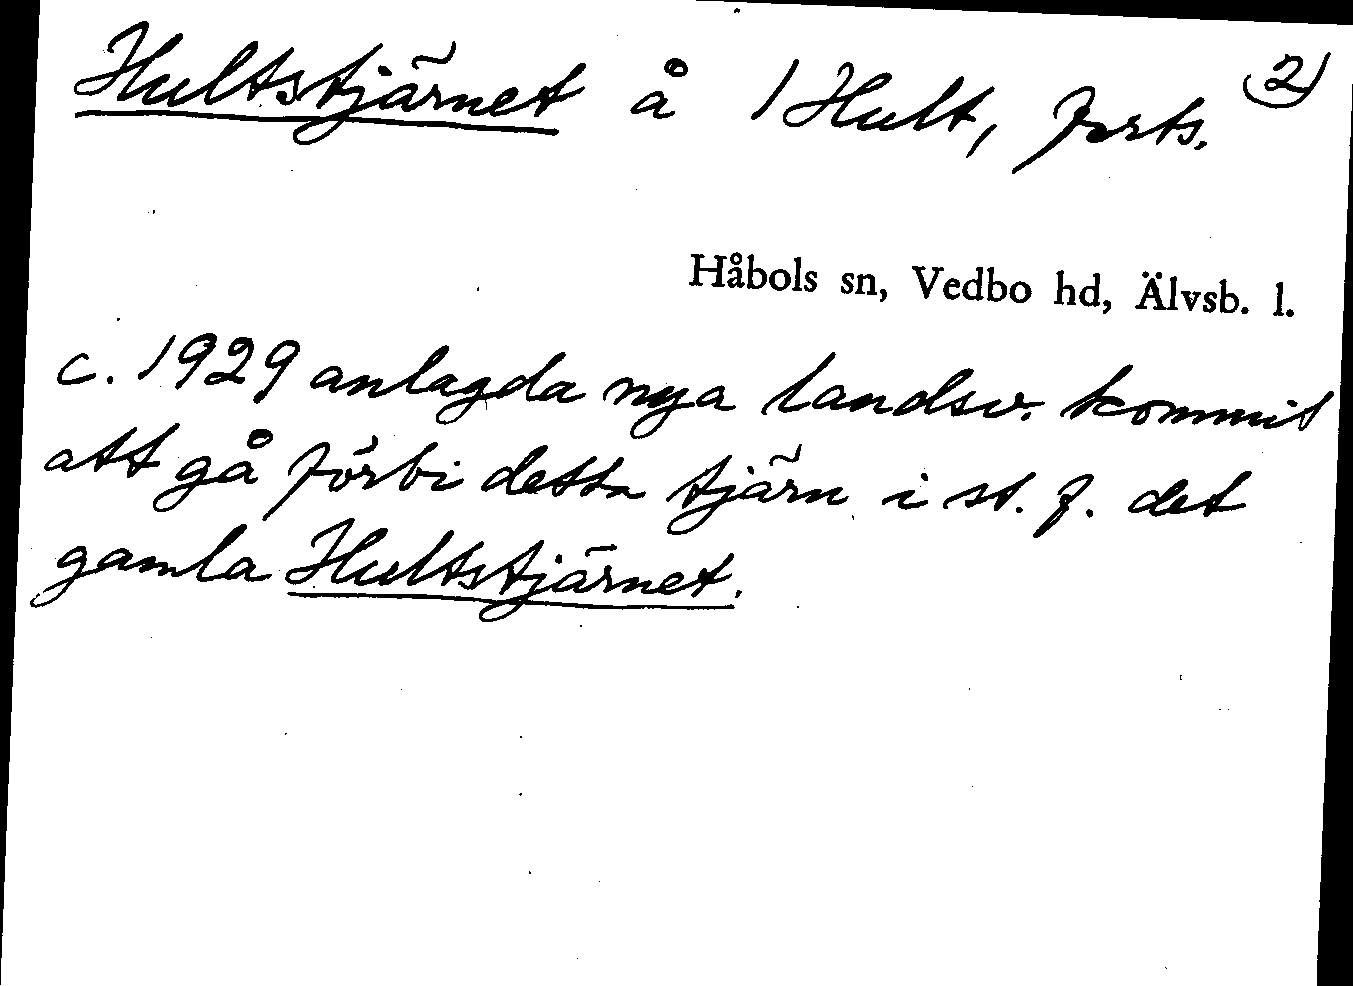 Hultstjärnet å 1 Hult, forts. 2)
Håbols sn, Vedbo hd, Älvsb. l.
c. 1929 anlagda nya landsv. kommit
att gå förbi detta tjärn i st. f. det
gamla Hultstjärnet.